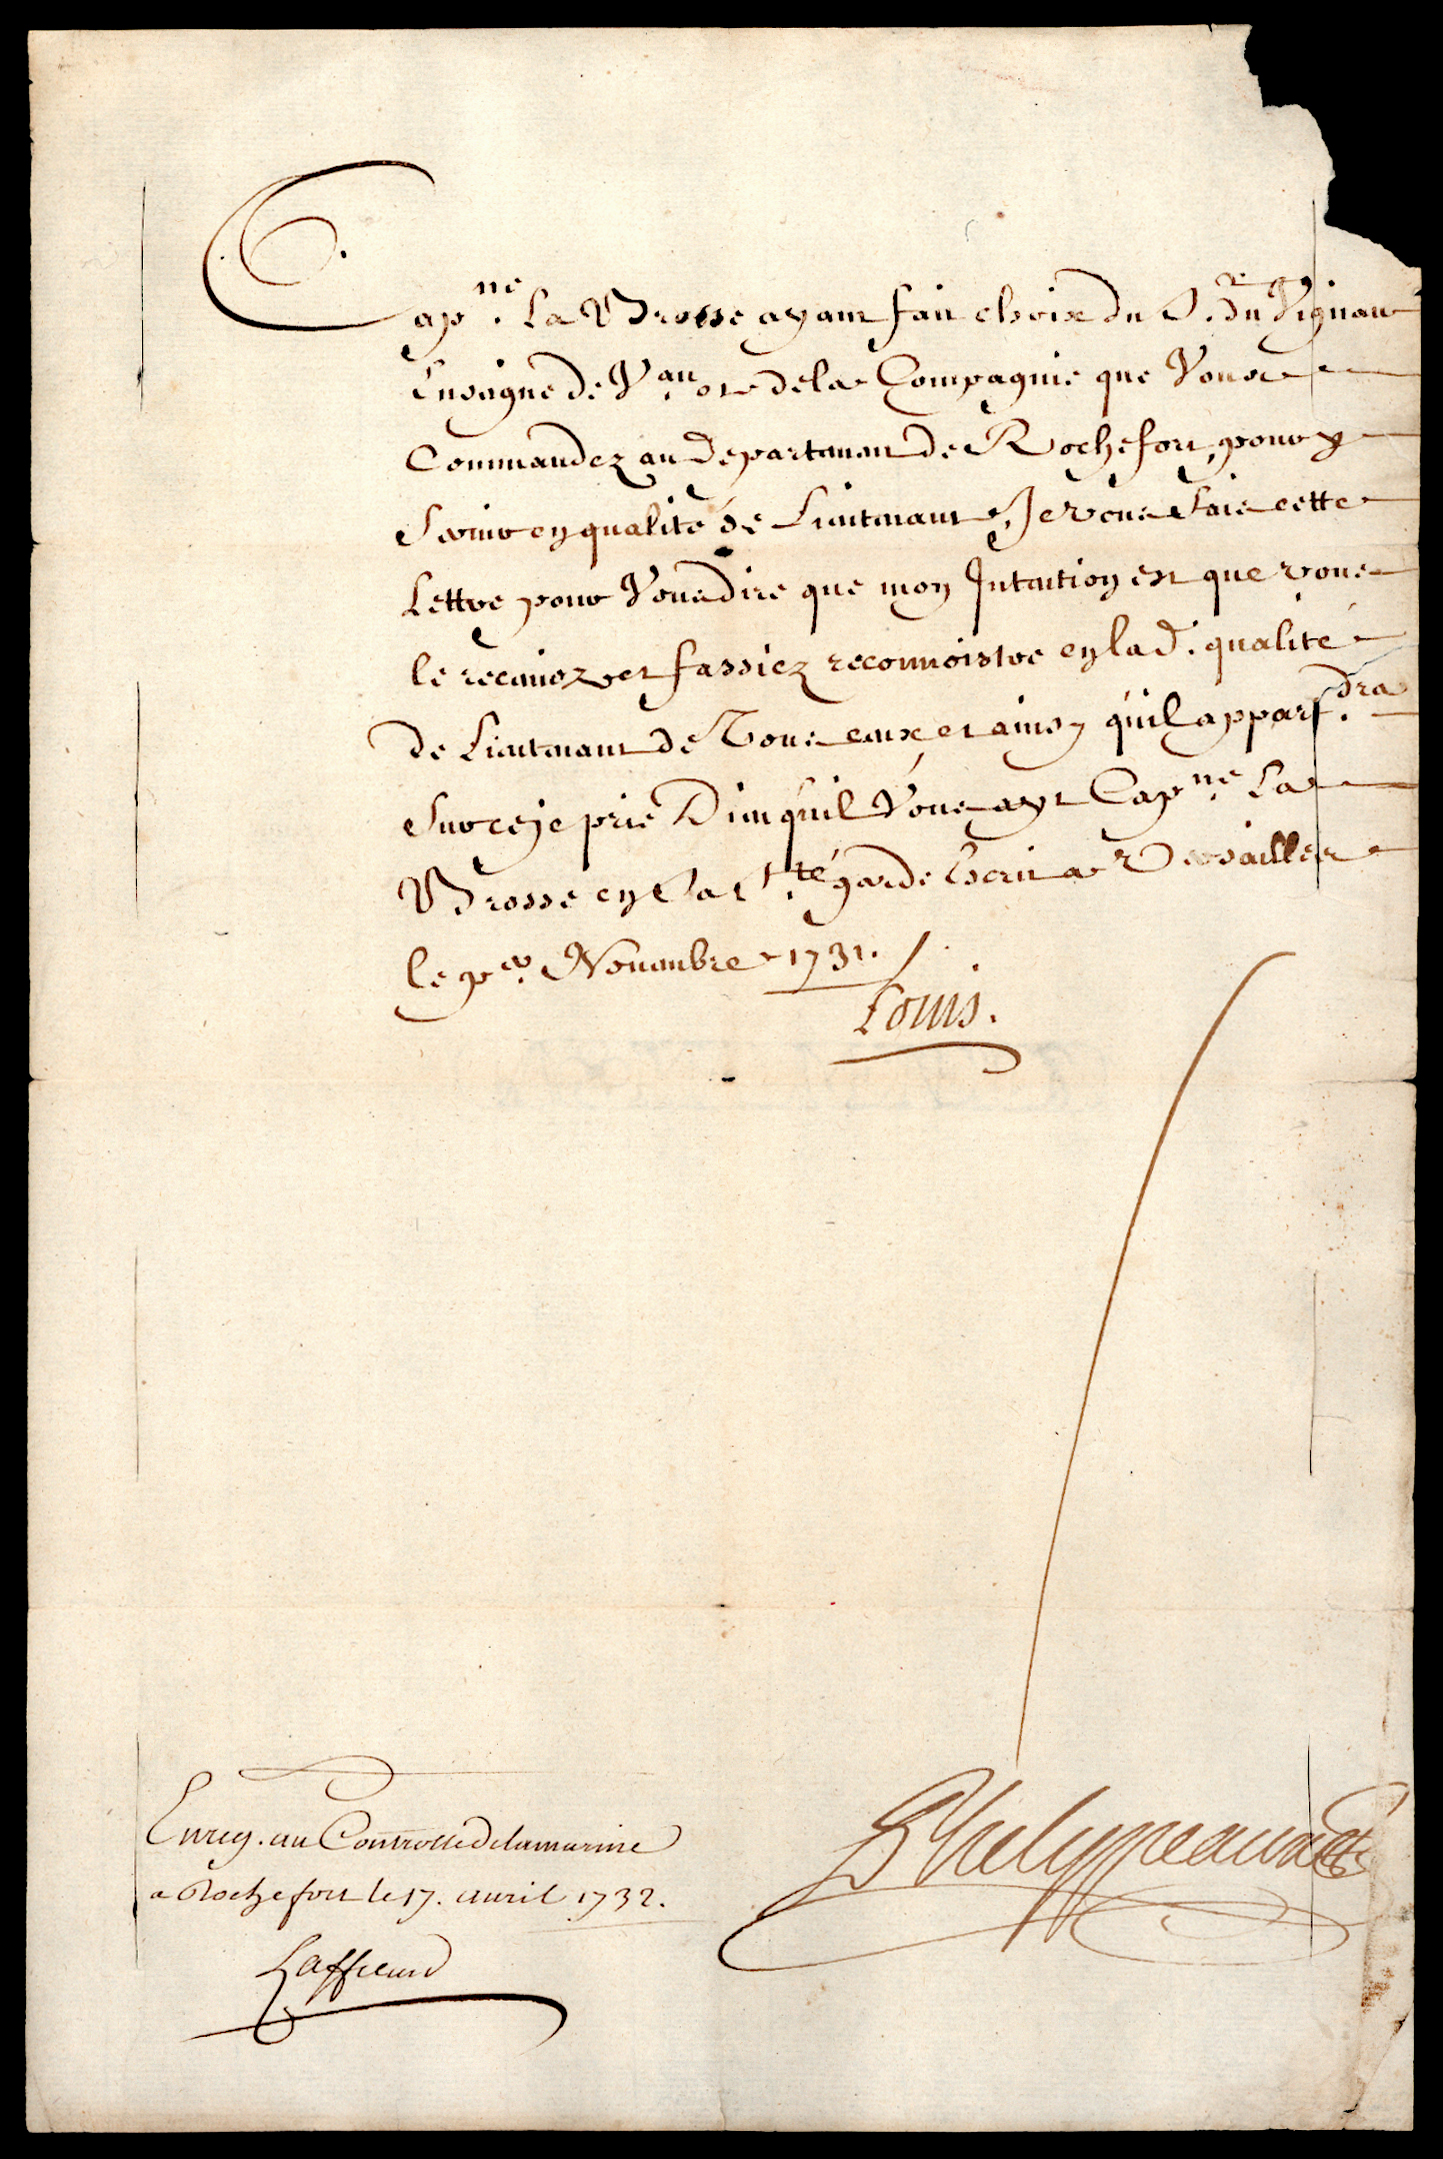 Cap.ne La Brosse ayant fait choix du S.r du Vignau
Enseigne de V.au et de la Compagnie que Vous
Commandez au departement de Rochefort, pour y
Servir en qualité de Lieutenant, Je vous fais cette
Lettre pour Vous dire que mon Intention est que vous
le receviez et fassiez reconnoistre en lad. qualité
de Lieutenant de Tous ceux et ainsy qu'il appart.dra
Sur ce je prie Dieu qu'il Vous ayt Cap.ne La
Brosse en Sa S.te garde Escrit a Versailles
le p.er Novembre 1731.
Louis.
Phelypeaux
Enreg. au Controlle de la marine
a Rochefort le 17. avril 1732.